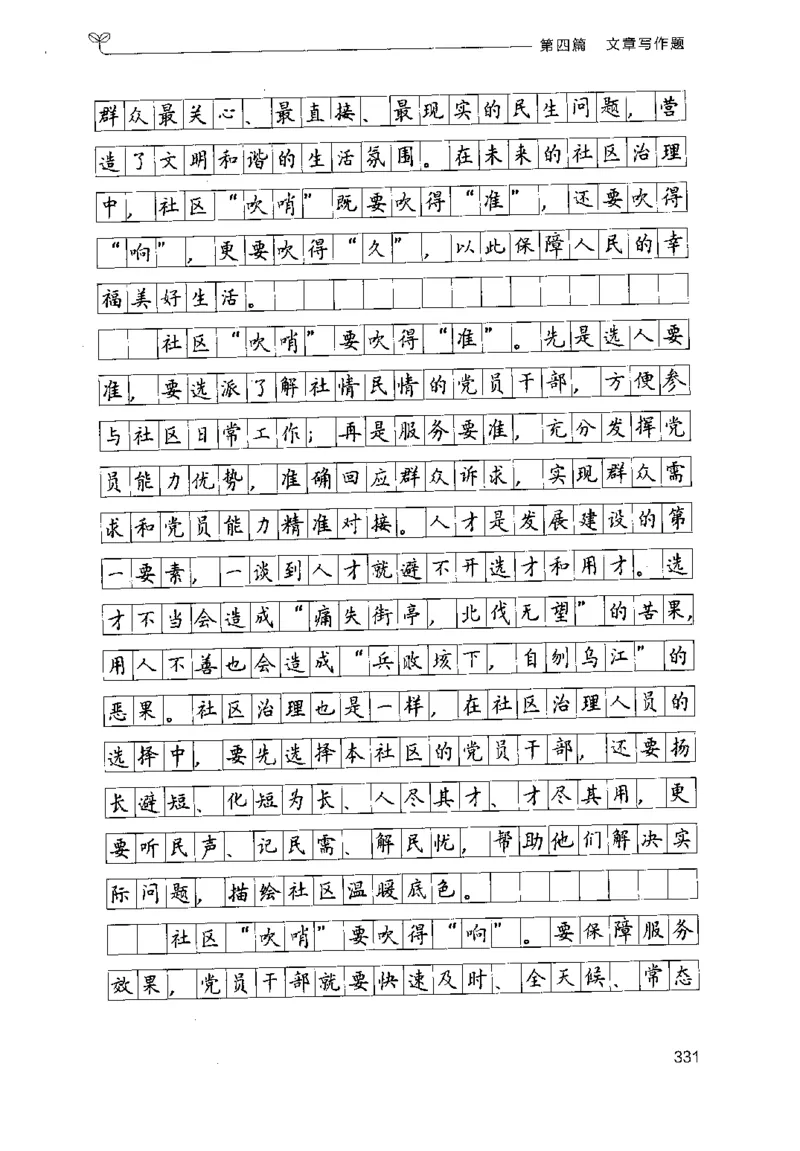 第四篇 文章写作题
群众最关心、最直接、最现实的民生问题，营
造了文明和谐的生活氛围。在未来的社区治理
中，社区“吹哨”既要吹得“准”，还要吹得
“响”，更要吹得“久”，以此保障人民的幸
福美好生活。
社区“吹哨”要吹得“准”。先是选人要
准，要选派了解社情民情的党员干部，方便参
与社区日常工作；再是服务要准，充分发挥党
员能力优势，准确回应群众诉求，实现群众需
求和党员能力精准对接。人才是发展建设的第
一要素，一谈到人才就避不开选才和用才。选
才不当会造成“痛失街亭，北伐无望”的苦果，
用人不善也会造成“兵败垓下，自刎乌江”的
恶果。社区治理也是一样，在社区治理人员的
选择中，要先选择本社区的党员干部，还要扬
长避短、化短为长、人尽其才、才尽其用，更
要听民声、记民需、解民忧，帮助他们解决实
际问题，描绘社区温暖底色。
社区“吹哨”要吹得“响”。要保障服务
效果，党员干部就要快速及时、全天候、常态
331